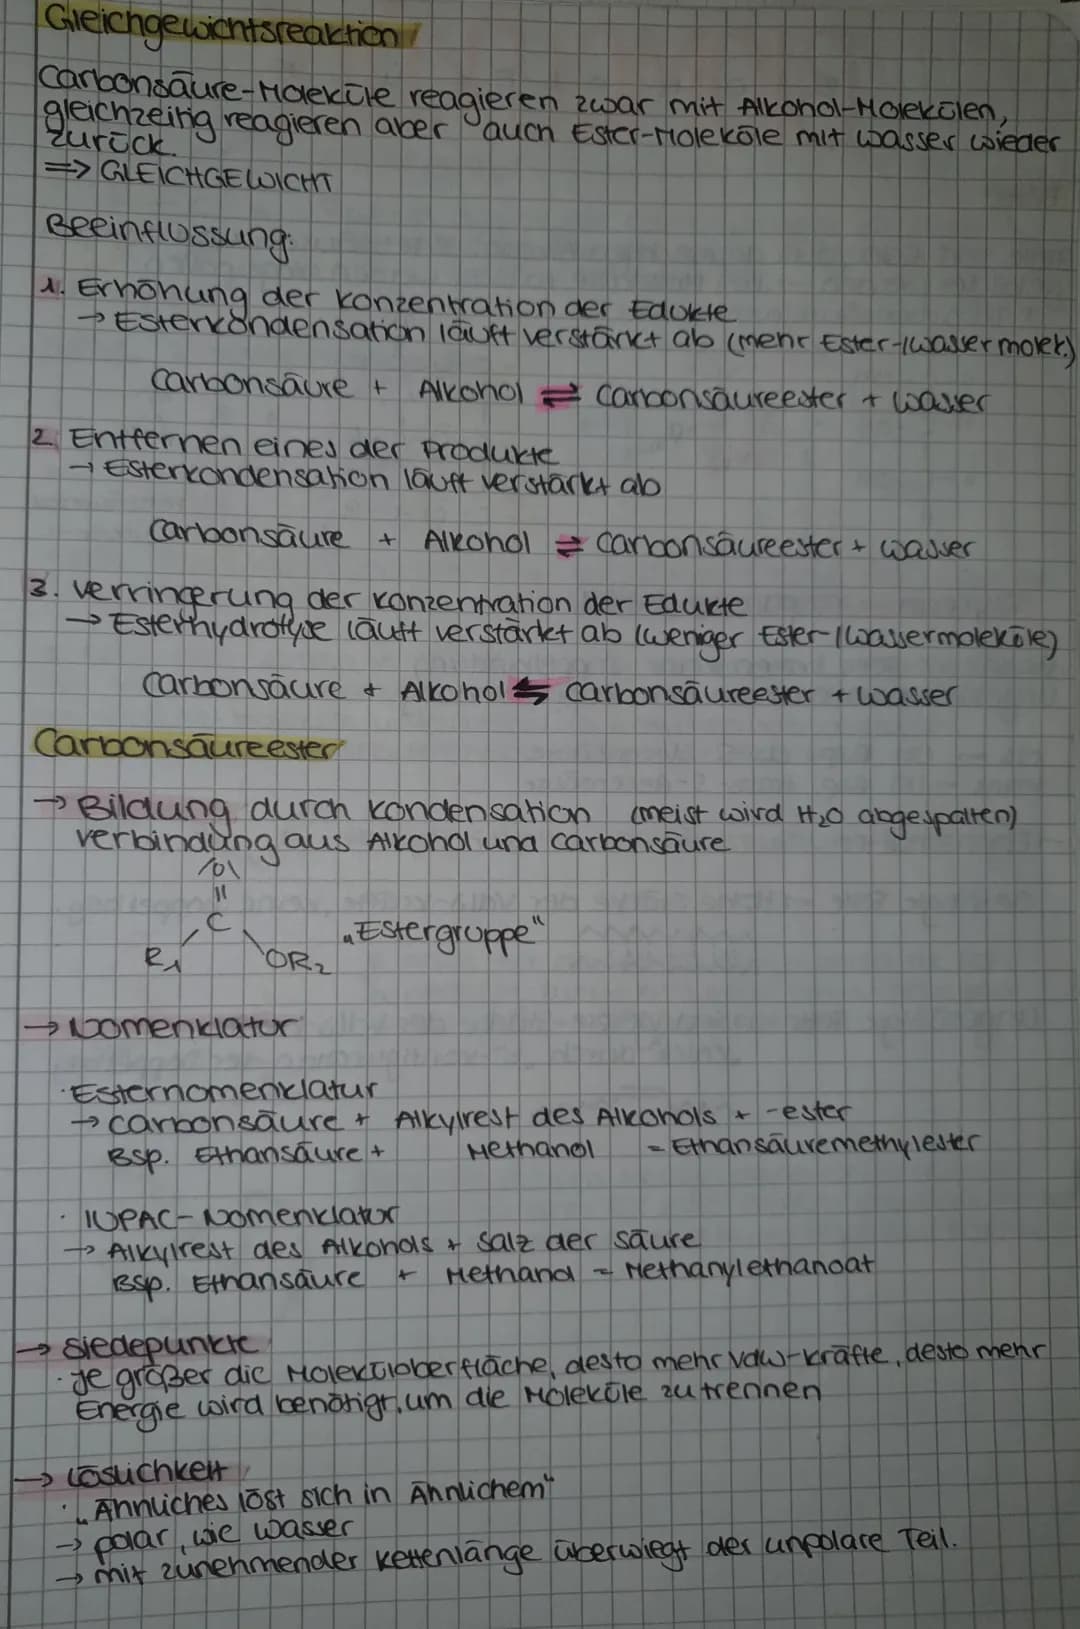 Gleichgewichtsreaktion
Carbonsäure-Moleküle reagieren zwar mit Alkohol-Molekülen,
gleichzeitig reagieren aber auch Ester-Moleküle mit Wasser wieder
zurück.
=> GLEICHGEWICHT
Beeinflussung:
1. Erhöhung der Konzentration der Edukte
→ Esterkondensation läuft verstärkt ab (mehr Ester-/Wassermolek.)
Carbonsäure + Alkohol ⇌ Carbonsäureester + Wasser
2. Entfernen eines der Produkte
→ Esterkondensation läuft verstärkt ab
Carbonsäure + Alkohol ⇌ Carbonsäureester + Wasser
3. Verringerung der Konzentration der Edukte
→ Esterhydrolyse läuft verstärkt ab (weniger Ester-/Wassermoleküle)
Carbonsäure + Alkohol ⇋ Carbonsäureester + Wasser
Carbonsäureester
→ Bildung durch Kondensation (meist wird H₂O abgespalten)
Verbindung aus Alkohol und Carbonsäure
/O\
||
C
R₁ OR₂ „Estergruppe"
→ Nomenklatur
· Esternomenklatur
→ Carbonsäure + Alkylrest des Alkohols + -ester
Bsp. Ethansäure + Methanol = Ethansäuremethylester
· IUPAC-Nomenklatur
→ Alkylrest des Alkohols + Salz der Säure
Bsp. Ethansäure + Methanol = Methanylethanoat
→ Siedepunkte
· Je größer die Moleküloberfläche, desto mehr VdW-Kräfte, desto mehr
Energie wird benötigt, um die Moleküle zu trennen
→ Löslichkeit
· „Ähnliches löst sich in Ähnlichem"
→ polar, wie Wasser
→ mit zunehmender Kettenlänge überwiegt der unpolare Teil.